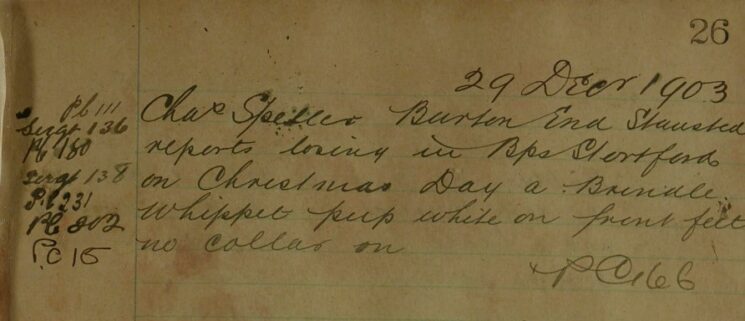 26
29 Decr 1903
Pc 111
Sergt 136
Pc 180
Sergt 138
P.c 231
Pc 202
P.C 15
Chas Speller Burton End Stansted
reports losing in Bps Stortford
on Christmas Day a Brindle
Whippet pup white on front felt
no collar on
PC 166